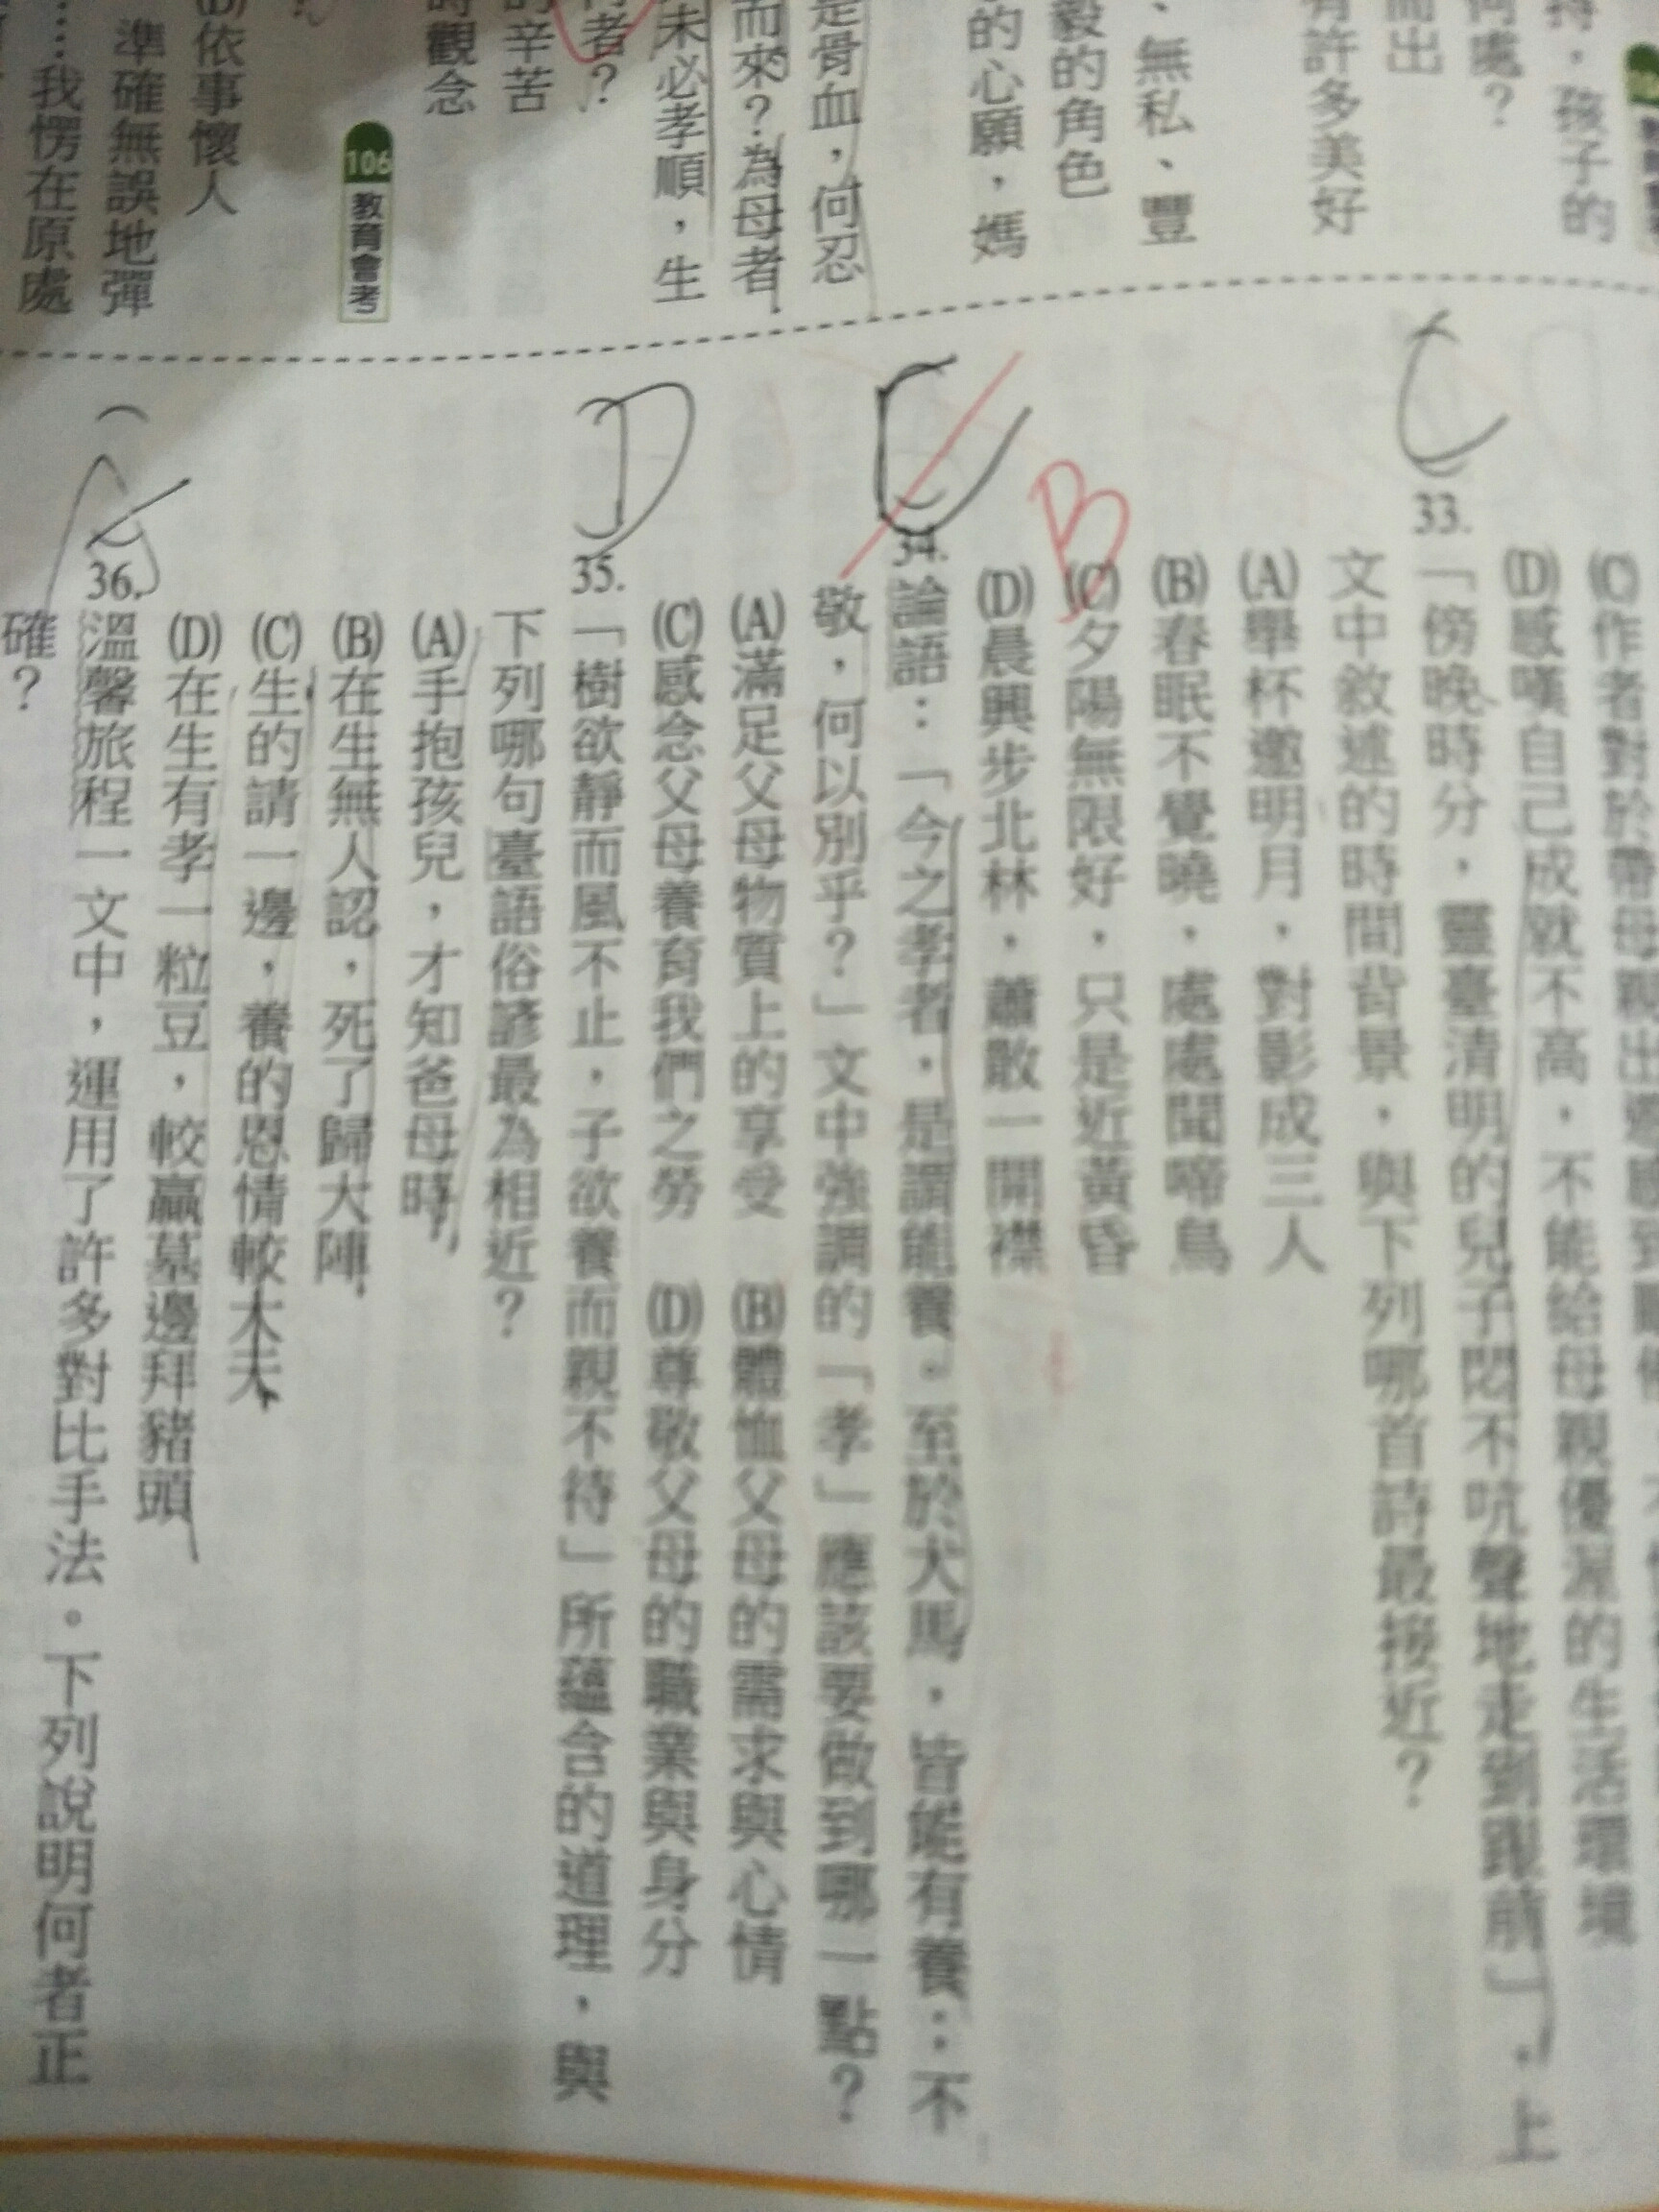 持，孩子的
何處？
而出
有許多美好
、無私、豐
毅的角色
的心願，媽
是骨血，何忍
而來？為母者
未必孝順，生
者？
的辛苦
時觀念
106 教育會考
(D)依事懷人
準確無誤地彈
……我愣在原處
(D)感嘆自己成就不高，不能給母親優渥的生活環境
C
33.「傍晚時分，靈臺清明的兒子悶不吭聲地走到跟前」，上
文中敘述的時間背景，與下列哪首詩最接近？
(A)舉杯邀明月，對影成三人
(B)春眠不覺曉，處處聞啼鳥
(C)夕陽無限好，只是近黃昏
(D)晨興步北林，蕭散一開襟
C
B
34.論語：「今之孝者，是謂能養。至於犬馬，皆能有養；不
敬，何以別乎？」文中強調的「孝」應該要做到哪一點？
(A)滿足父母物質上的享受 (B)體恤父母的需求與心情
(C)感念父母養育我們之勞 (D)尊敬父母的職業與身分
D
35.「樹欲靜而風不止，子欲養而親不待」所蘊含的道理，與
下列哪句臺語俗諺最為相近？
(A)手抱孩兒，才知爸母時
(B)在生無人認，死了歸大陣
(C)生的請一邊，養的恩情較大天
(D)在生有孝一粒豆，較贏墓邊拜豬頭
36.溫馨旅程一文中，運用了許多對比手法。下列說明何者正
確？